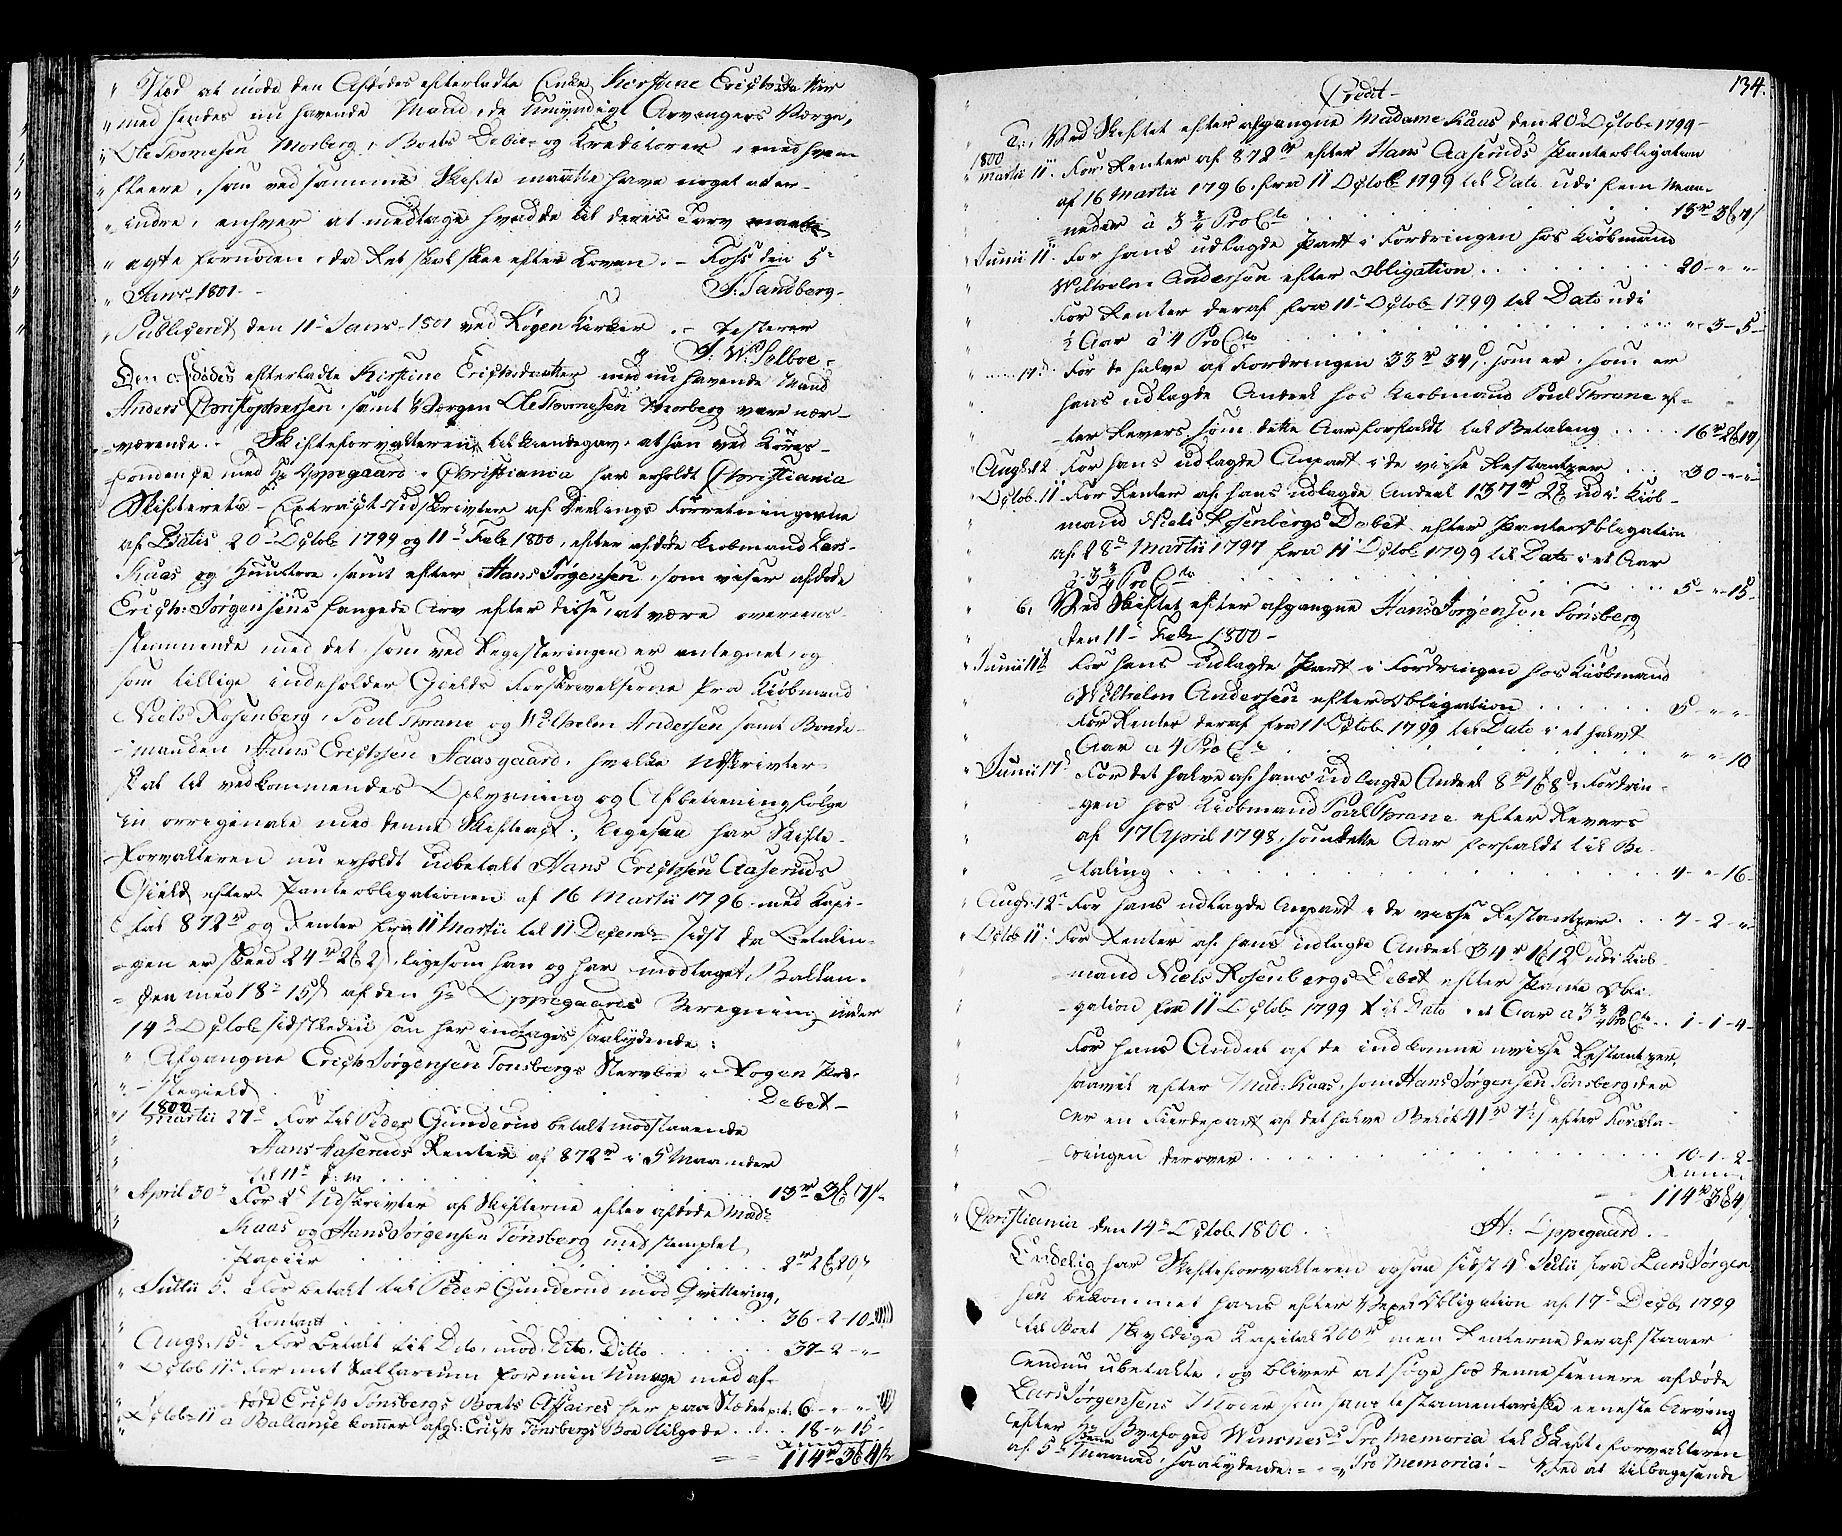 " Sted at møde den Afdødes efterladte Enke Kirstine Erichsdatter
" med hendes nu havende Mand, de Umyndige Arvingers Værge,
" Ole Thomesen Morberg, Boets Debit- og Kreditorer, med hvem
" fleere, som ved samme Skifte maatte have noget at er-
" indre, enhver at medtage hvad de til deres Tarv maatte
" agte fornøden, da Ret skal skee efter Loven. - Foss den 5te
" Janr 1801 -
J. Sandberg -
" Publiceret den 11te Janr 1801 ved Røgen Kirke . - Testerer
J. W. Selboe -
Den afdødes efterladte Kirstine Erichsdatter med nu havende Mand
Anders Christophersen, samt Børgen Ole Thomesen Morberg vare nær-
værende. - Skifteforvalteren tilkiendegav, at han ved Korres-
pondence med Hr Oppegaard i Christiania har erholdt Christiania
Skifterets Extract-Udskrivter af Deelings Forretningerne
af Datis 20de Octobr 1799 og 11te Febr 1800, efter afdøde Kiøbmand Lars
Kaas og Hustroe, samt efter Hans Jørgensen, som viser afdøde
Erich Jørgensens fangede Arv efter disse, at være overeens-
stemmende med det, som ved Registeringen er antegnet, og
som tillige indeholder Gields Forskrivelserne fra Kiøbmand
Niels Rosenberg, Poul Thrane og Wilhelm Andersen samt Bonde-
manden Hans Erichsen Haasgaard, hvilke Udskrivter
skal til vedkommendes Oplysning og Afbetiening følge
in originale med denne Skifteact; ligesaa har Skifte-
forvalteren nu erholdt udbetalt Hans Erichsen Aaseruds
Gield efter Panteobligationen af 16 Martii 1796 med Kapi-
tal 872rd og Renter fra 11 Martii til 11 Decembr sidst da Betalin-
gen er skeed 24rd 2 2 , ligesom han og har modtaget Ballan-
cen med 18rd 15s af den Hr Oppegaards Beregning under
14de Octobr sidstleden som her indtages saalydende:
" Afgangne Erich Jørgensen Tønsbergs Stervboe i Røgen Præ-
" stegield
Debet -
1800
" Martii 27de For til Peder Gunderud betalt modstaaende
Hans Aaseruds Renter af 872rd i 5 Maaneder
til 11te d: m . . . 13rd 3 7s
" April 30te For 2de Udskrivter af Skifterne efter afdøde Madme
Kaas og Hans Jørgensen Tønsberg med stemplet
Papiir . . . 2rd 2 20s
" Julii 5. For betalt til Peder Gunderud mod Qvittering,
Kontant . . . 36 - 2 - 10
" Augs. 15de For Betalt til Dito, mod Dito Ditto . . . 37 - 2 - "
" Octobr 11te For mit Sallarium for min Umage med af-
døde Erich Tønsbergs Boets Affaires her paa Stedet 6 - " - "
" Octobr 11 a Ballance kommer afg: Erich Tønsbergs Boe tilgode . . . 18 - " 15 -
114rd 3 4s
134.
Credit -
Ved Skiftet efter afgangne Madame Kaas den 20de Octobr 1799 -
1800
" Martii 11. For Renter af 872rd efter Hans Aaseruds Panteobligation
af 16 Martii 1796 fra 11 Octobr 1799 til Dato udi fem Maa-
neder à 3 3/4 Pro Cto . . . 13rd 3 7s
" Junii 11. For hans udlagde Part i Fordringen hos Kiøbmand
Wilhelm Andersen efter Obligation . . . 20 - " - "
For Renter deraf fra 11te Octobr 1799 til Dato udi
1/2 Aar à 4 Pro Cto . . . " - 3 - 5 -
" 17de. For de halve af Fordringen 33rd 34s, som er, som er
hans udlagde Andeel hos Kiøbmand Poul Thrane ef-
ter Revers som dette Aar forfaldt til Betaling . . . 16rd 2
" Augs. 12 For hans udlagde Anpart i de visse Restantzer . . . 30 - " - "
" Octobr. 11 For Renter af hans udlagde Andeel 137rd 2 udi Kiøb-
mand Niels Rosenbergs Debet efter Panteobligation
af 28de Martii 1797 fra 11te Octobr 1799 til Dato i et Aar
à 3 3/4 Pro Cto . . . 5 - " - 15 -
6. Ved Skiftet efter afgangne Hans Jørgensen Tønsberg
den 11te Febr 1800 -
" Junii 11te For hans udlagde Part i Fordringen hos Kiøbmand
Wilhelm Andersen efter Obligation . . . 5 - " - "
For Renter deraf fra 11 Octobr 1799 til Dato i et halvt
Aar à 4 Pro Cto . . . " - " - 10
" Junii 17de For det halve af hans udlagde Andeel 8rd 1 8s i Fordrin-
gen hos Kiøbmand Poul Thrane efter Revers
af 17 April 1798, som dette Aar forfaldt til Be-
taling . . . 4 - " - 16 -
" Augs. 12te For hans udlagde Anpart i de visse Restantzer . . . 7 - 2 - "
" Octobr 11. For Renter af hans udlagde Andeel 34rd 1 12s udi Kiøb-
mand Niels Rosenbergs Debet efter Pante Obli-
gation fra 11 Octobr 1799 til Dato i et Aar à 3 3/4 Pro Cto . . 1 - 1 - 4 -
For hans Andeel af de indkomne uvisse Restantzer,
saavel efter Mad: Kaas, som Hans Jørgensen Tønsberg der
er en Fierdepart af det halve Beløb 41rd 7s efter Forkla-
ringen derover . . . 10 - 1 - 2 -
Summa
114rd 3 4s
" Christiania den 14de Octobr 1800. H: Oppegaard. -
Endelig har Skifteforvalteren ogsaa sidst 4de Julii fra Lars Jørgen-
sen bekommet hans efter Vexel Obligation af 17de Decbr 1799
til Boet skyldige Kapital 200rd, men Renterne deraf staaer
endnu ubetalte, og bliver at søge hos denne seenere afdøde
Lars Jørgensens Moder som hans testamentariske eeneste Arving
efter Hr Byefoged Winsnes's Pro Memoria til Skifteforvalteren
af 5te denne Maaned, saalydende: - " Pro Memoria! - Ved at tilbagesende